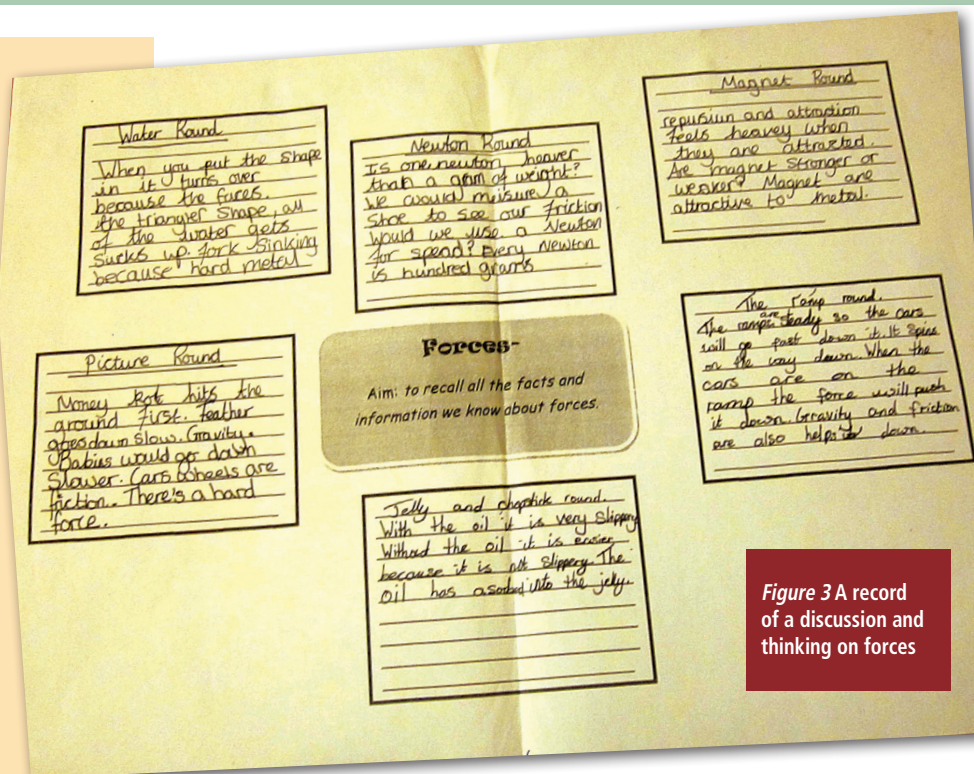 Water Round
When you put the shape
in it turns over
because the faces.
the triangler shape, all
of the water gets
sucks up. fork sinking
because hard metal
Newton Round
Is one newton, heaver
than a gram of weight?
We would meisure a
shoe to see our friction
Would we use a Newton
for spend? Every Newton
is hundred grams
Magnet Round
repusiun and attraction
Feels heavey when
they are attracted.
Are magnet stronger or
weaker? Magnet are
attractive to metal.
Picture Round
Money hits the
ground first. feather
goes down slow. Gravity.
Babies would go down
Slower. Cars wheels are
friction. There's a hard
force.
Forces-
Aim: to recall all the facts and
information we know about forces.
The ramp round.
The ramps are steady so the cars
will go fast down it. It spins
on the way down. When the
cars are on the
ramp the force will push
it down. Gravity and friction
are also helps down.
Jelly and chopstick round.
With the oil it is very slippery
Without the oil it is easier
because it is not slippery. The
oil has asorbed into the jelly.
Figure 3 A record
of a discussion and
thinking on forces